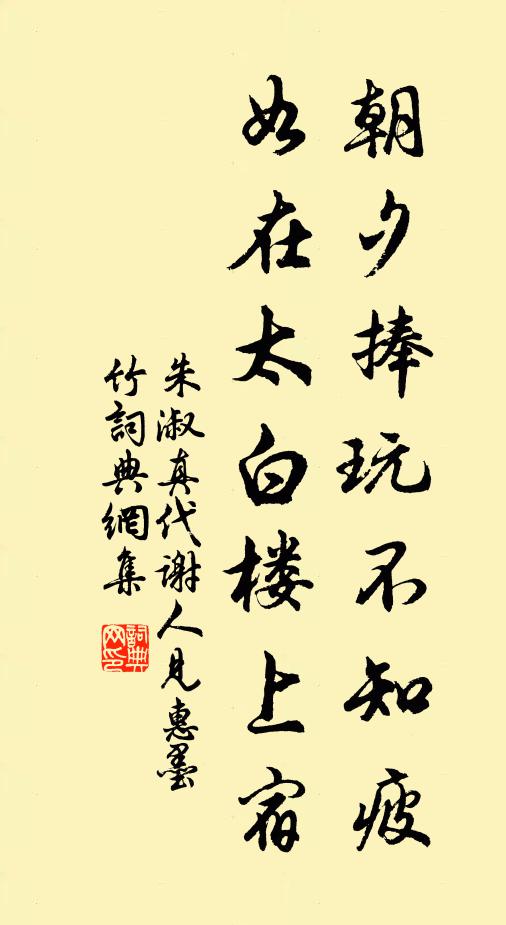 朝夕捧玩不知疲
如在太白楼上宿
朱淑真代谢人见惠墨
竹詞典網集
詞典
网印